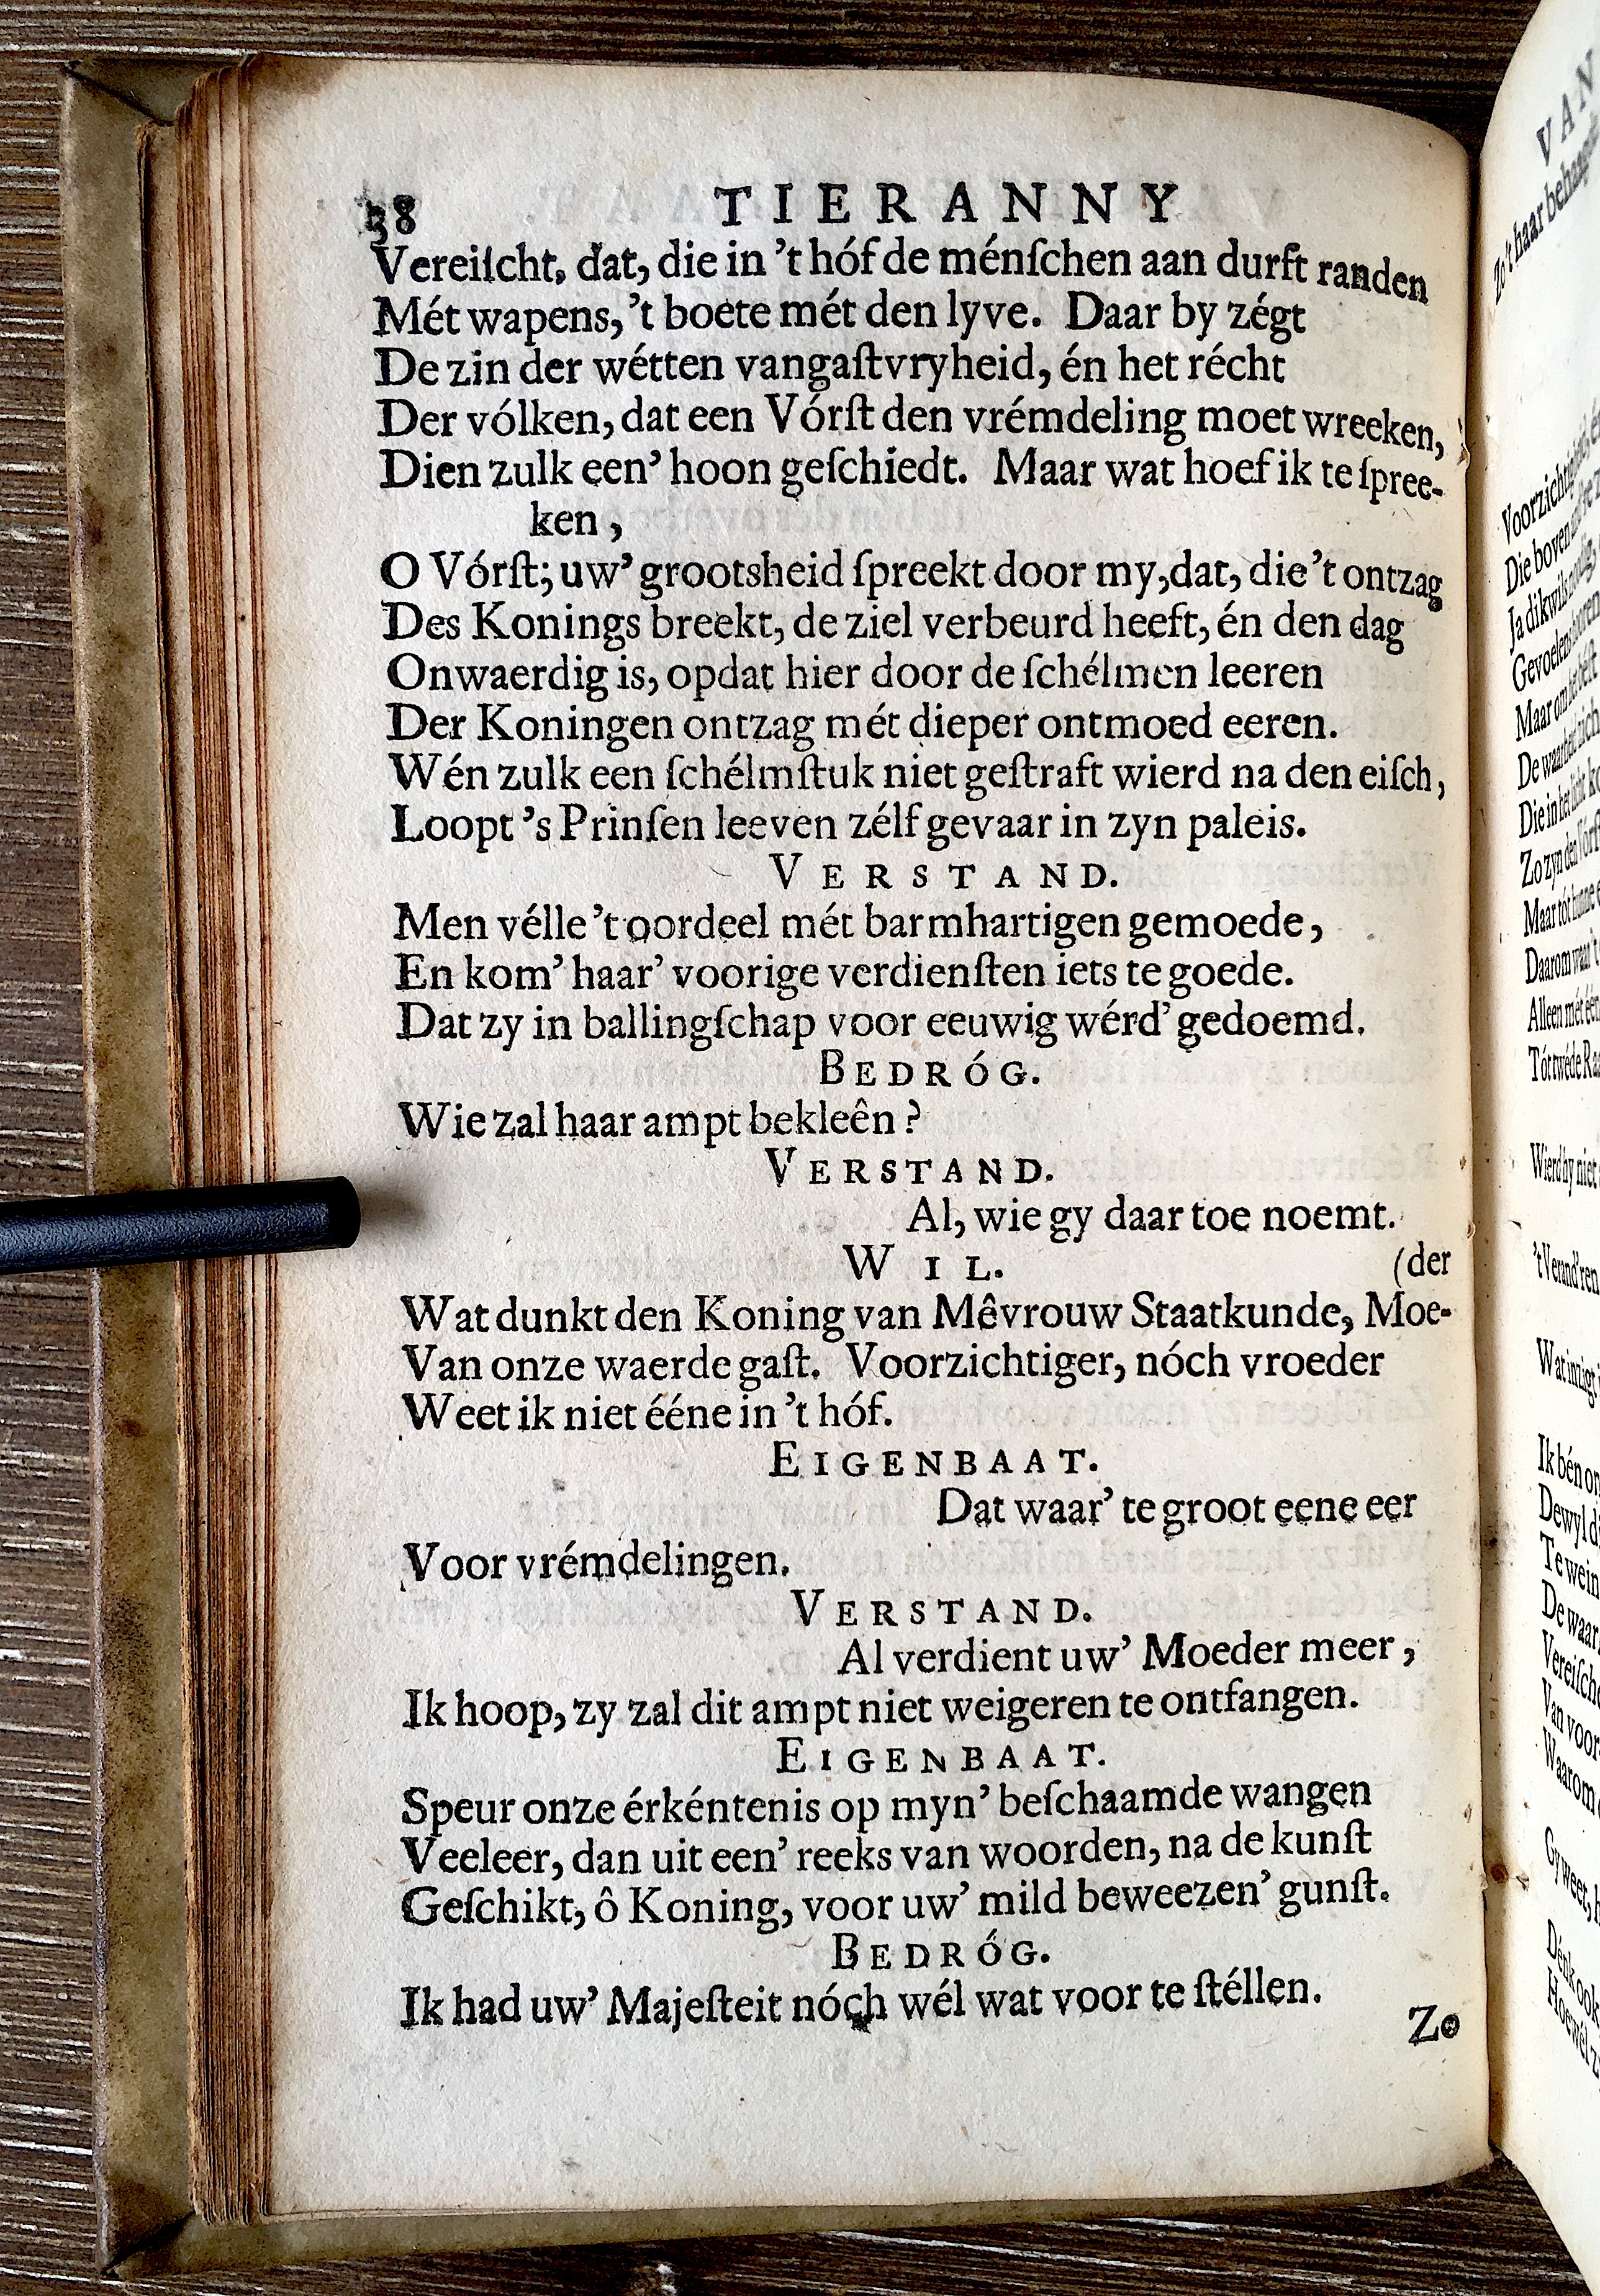 38 TIERANNY
Vereiſcht, dat, die in 't hóf de ménſchen aan durft randen
Mét wapens, 't boete mét den lyve. Daar by zégt
De zin der wétten vangaſtvryheid, én het récht
Der vólken, dat een Vórſt den vrémdeling moet wreeken,
Dien zulk een' hoon geſchiedt. Maar wat hoef ik te ſpree-
ken,
O Vórſt; uw' grootsheid ſpreekt door my, dat, die 't ontzag
Des Konings breekt, de ziel verbeurd heeft, én den dag
Onwaerdig is, opdat hier door de ſchélmen leeren
Der Koningen ontzag mét dieper ontmoed eeren.
Wén zulk een ſchélmſtuk niet geſtraft wierd na den eiſch,
Loopt 's Prinſen leeven zélf gevaar in zyn paleis.
VERSTAND.
Men vélle 't oordeel mét barmhartigen gemoede,
En kom' haar' voorige verdienſten iets te goede.
Dat zy in ballingſchap voor eeuwig wérd' gedoemd.
BEDRÓG.
Wie zal haar ampt bekleên?
VERSTAND.
Al, wie gy daar toe noemt.
WIL. (der
Wat dunkt den Koning van Mêvrouw Staatkunde, Moe-
Van onze waerde gaſt. Voorzichtiger, nóch vroeder
Weet ik niet ééne in 't hóf.
EIGENBAAT.
Dat waar' te groot eene eer
Voor vrémdelingen.
VERSTAND.
Al verdient uw' Moeder meer,
Ik hoop, zy zal dit ampt niet weigeren te ontfangen.
EIGENBAAT.
Speur onze érkéntenis op myn' beſchaamde wangen
Veeleer, dan uit een' reeks van woorden, na de kunſt
Geſchikt, ô Koning, voor uw' mild beweezen' gunſt.
BEDRÓG.
Ik had uw' Majeſteit nóch wél wat voor te ſtéllen.
Zo
VAN
Zo 't haar behaagde
Voorzichtigheid, én
Die boven
Ja dikwils nodig,
Gevoelens
Maar om
De waarheid
Die in het licht
Zo zyn den Vórſt
Maar tót hunne
Daarom waar 't
Alleen mét één
Tót twéde Raa
Wierd hy niet
't Verand'ren
Wat inzigt
Ik bén on
Dewyl di
Te wein
De waar
Vereiſche
Van voor
Waarom
Gy weet, h
Dénk ook
Hoewél z